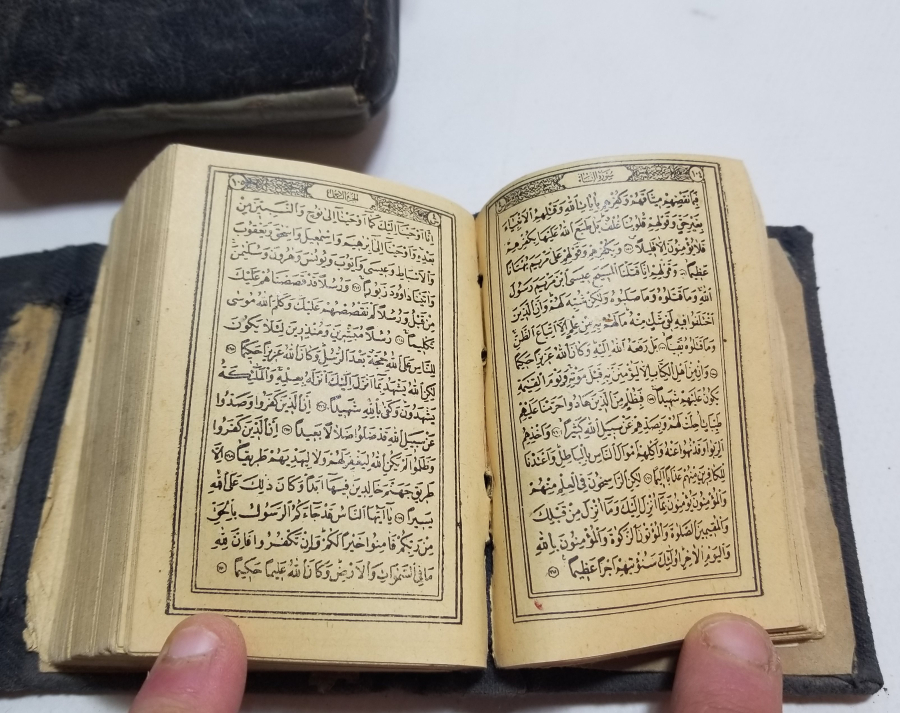 سورة النساء
فبما نقضهم ميثاقهم وكفرهم بآيات الله وقتلهم الأنبياء
بغير حق وقولهم قلوبنا غلف بل طبع الله عليها بكفرهم
فلا يؤمنون إلا قليلا وبكفرهم وقولهم على مريم بهتانا
عظيما وقولهم إنا قتلنا المسيح عيسى ابن مريم رسول
الله وما قتلوه وما صلبوه ولكن شبه لهم وإن الذين
اختلفوا فيه لفي شك منه ما لهم به من علم إلا اتباع الظن
وما قتلوه يقينا بل رفعه الله إليه وكان الله عزيزا حكيما
وإن من أهل الكتاب إلا ليؤمنن به قبل موته ويوم القيمة
يكون عليهم شهيدا فبظلم من الذين هادوا حرمنا عليهم
طيبات أحلت لهم وبصدهم عن سبيل الله كثيرا وأخذهم
الربوا وقد نهوا عنه وأكلهم أموال الناس بالباطل وأعتدنا
للكافرين منهم عذابا أليما لكن الراسخون في العلم منهم
والمؤمنون يؤمنون بما أنزل إليك وما أنزل من قبلك
والمقيمين الصلوة والمؤتون الزكوة والمؤمنون بالله
واليوم الآخر أولئك سنؤتيهم أجرا عظيما
١٠٥
إنا أوحينا إليك كما أوحينا إلى نوح والنبيين من
بعده وأوحينا إلى إبرهيم وإسمعيل وإسحق ويعقوب
والأسباط وعيسى وأيوب ويونس وهرون وسليمن
وآتينا داوود زبورا ورسلا قد قصصناهم عليك
من قبل ورسلا لم نقصصهم عليك وكلم الله موسى
تكليما رسلا مبشرين ومنذرين لئلا يكون
للناس على الله حجة بعد الرسل وكان الله عزيزا حكيما
لكن الله يشهد بما أنزل إليك أنزله بعلمه والملئكة
يشهدون وكفى بالله شهيدا إن الذين كفروا وصدوا
عن سبيل الله قد ضلوا ضلالا بعيدا إن الذين كفروا
وظلموا لم يكن الله ليغفر لهم ولا ليهديهم طريقا إلا
طريق جهنم خالدين فيها أبدا وكان ذلك على الله
يسيرا يا أيها الناس قد جاءكم الرسول بالحق
من ربكم فآمنوا خيرا لكم وإن تكفروا فإن لله
ما في السموات والأرض وكان الله عليما حكيما